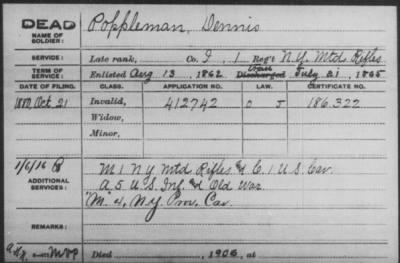 DEAD
NAME OF SOLDIER: Poppleman, Dennis
SERVICE: Late rank, Co. I, 1 Reg't N.Y. Mtd Rifles
TERM OF SERVICE: Enlisted Aug 13, 1862 Discharged July 21, 1865
DATE OF FILING. CLASS. APPLICATION NO. LAW. CERTIFICATE NO.
1880, Oct. 21 Invalid, 412742 186.322
Widow,
Minor,
1/6/16
ADDITIONAL SERVICES: M 1 N Y Mtd Rifles & C. 1 U.S. Cav.
A. 5 U.S. Inf. & Old War
"M" 4, N.Y. Prov. Cav.
REMARKS:
Died 1906, at